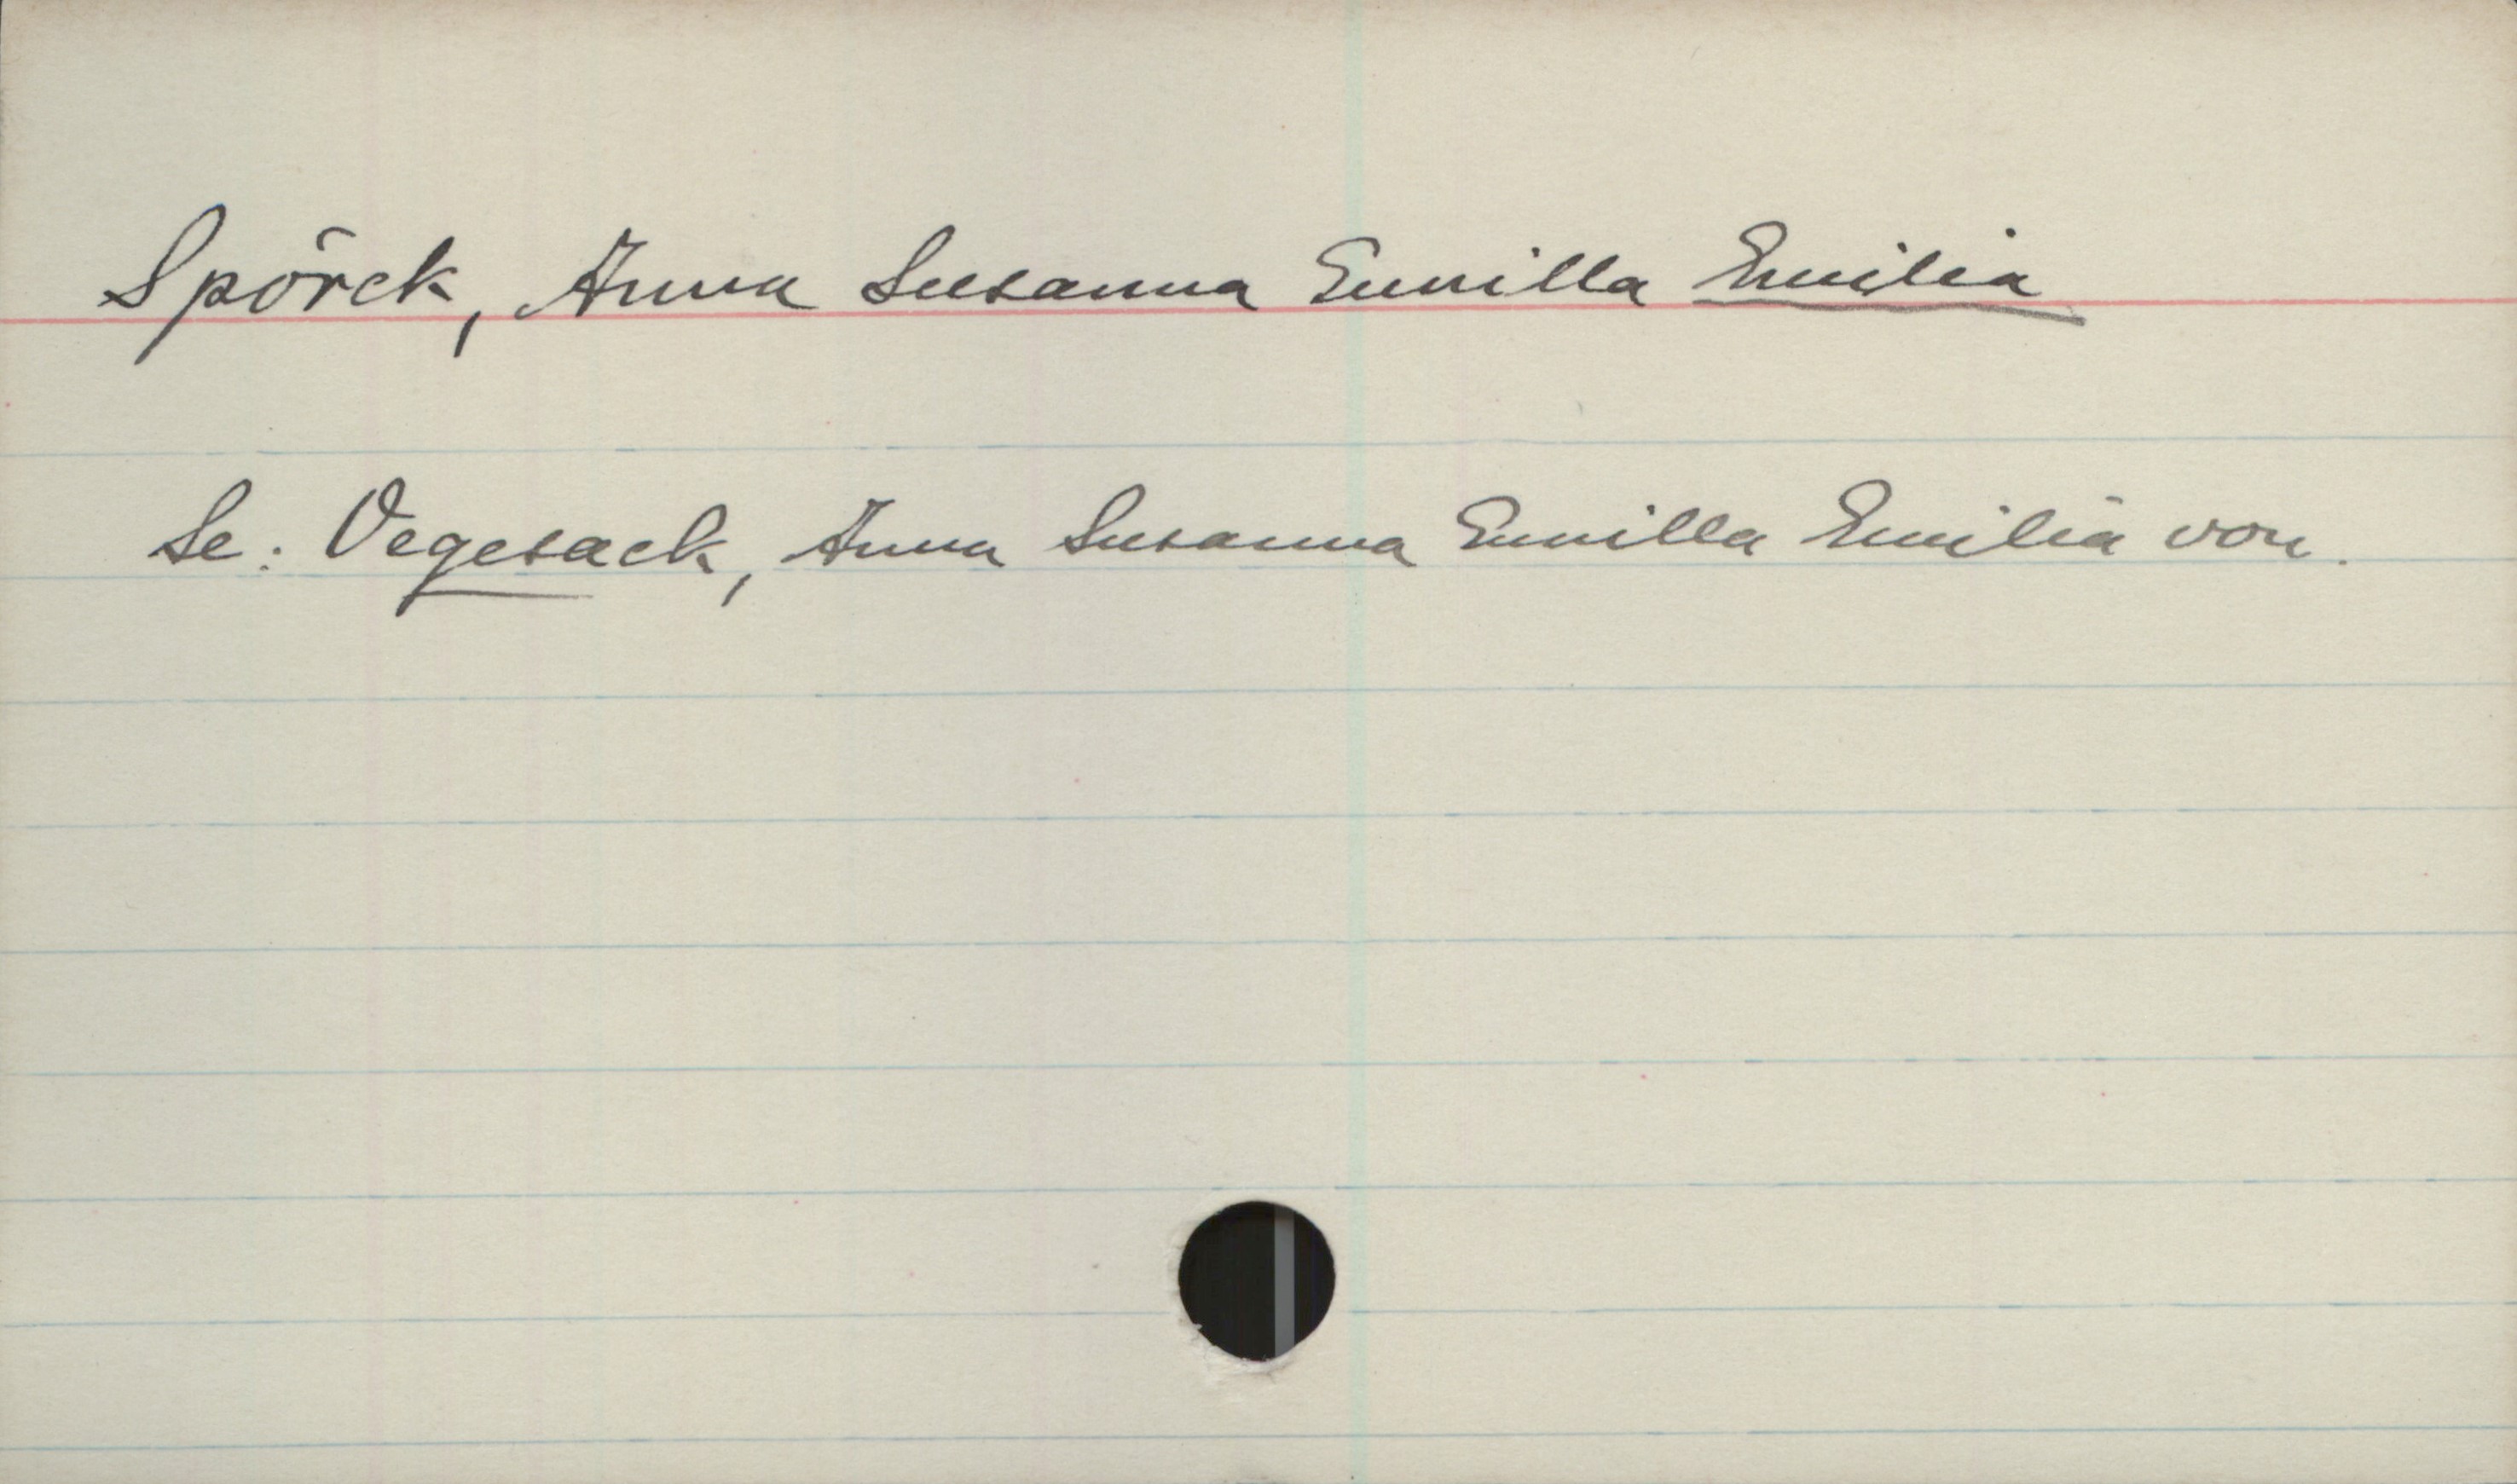 Spörck, Anna Susanna Gunilla Emilia
Se: Vegesack, Anna Susanna Gunilla Emilia von.